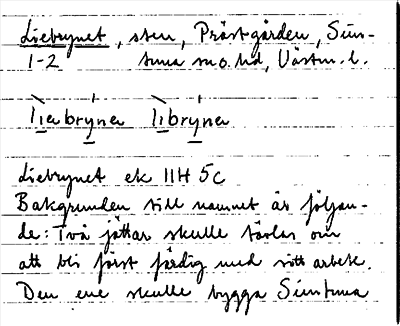 Liebrynet, sten, Prästgården, Sim-
1-2 tuna sn o. hd, Västm. l.
li̱abry̱nea li̱bry̱nea
Liebrynet ek 11H 5c
Bakgrunden till namnet är följan-
de: Två jättar skulle tävlas om
att bli först färdig med sitt arbete.
Den ene skulle bygga Simtuna